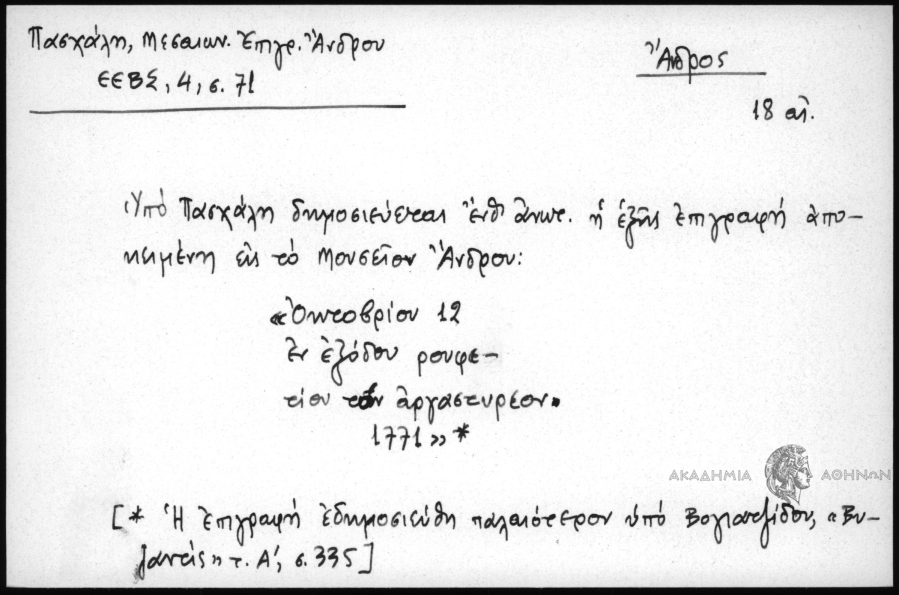 Πασχάλη, Μεσαιων. Ἐπιγρ. Ἄνδρου
ΕΕΒΣ, 4, σ. 71
Ἄνδρος
18 αἰ.
Ὑπὸ Πασχάλη δημοσιεύεται ἔνθ' ἀνωτ. ἡ ἑξῆς ἐπιγραφή ἀπο-
κειμένη εἰς τὸ Μουσεῖον Ἄνδρου:
«Ὀκτοβρίου 12
ἐν ἐξόδου ρουφε-
τίου τῶν ἀργαστυρέον.
1771»*
ΑΚΑΔΗΜΙΑ ΑΘΗΝΩΝ
[* Ἡ ἐπιγραφή ἐδημοσιεύθη παλαιότερον ὑπό Βογιατζίδου, «Βυ-
ζαντίς» τ. Α', σ. 335]